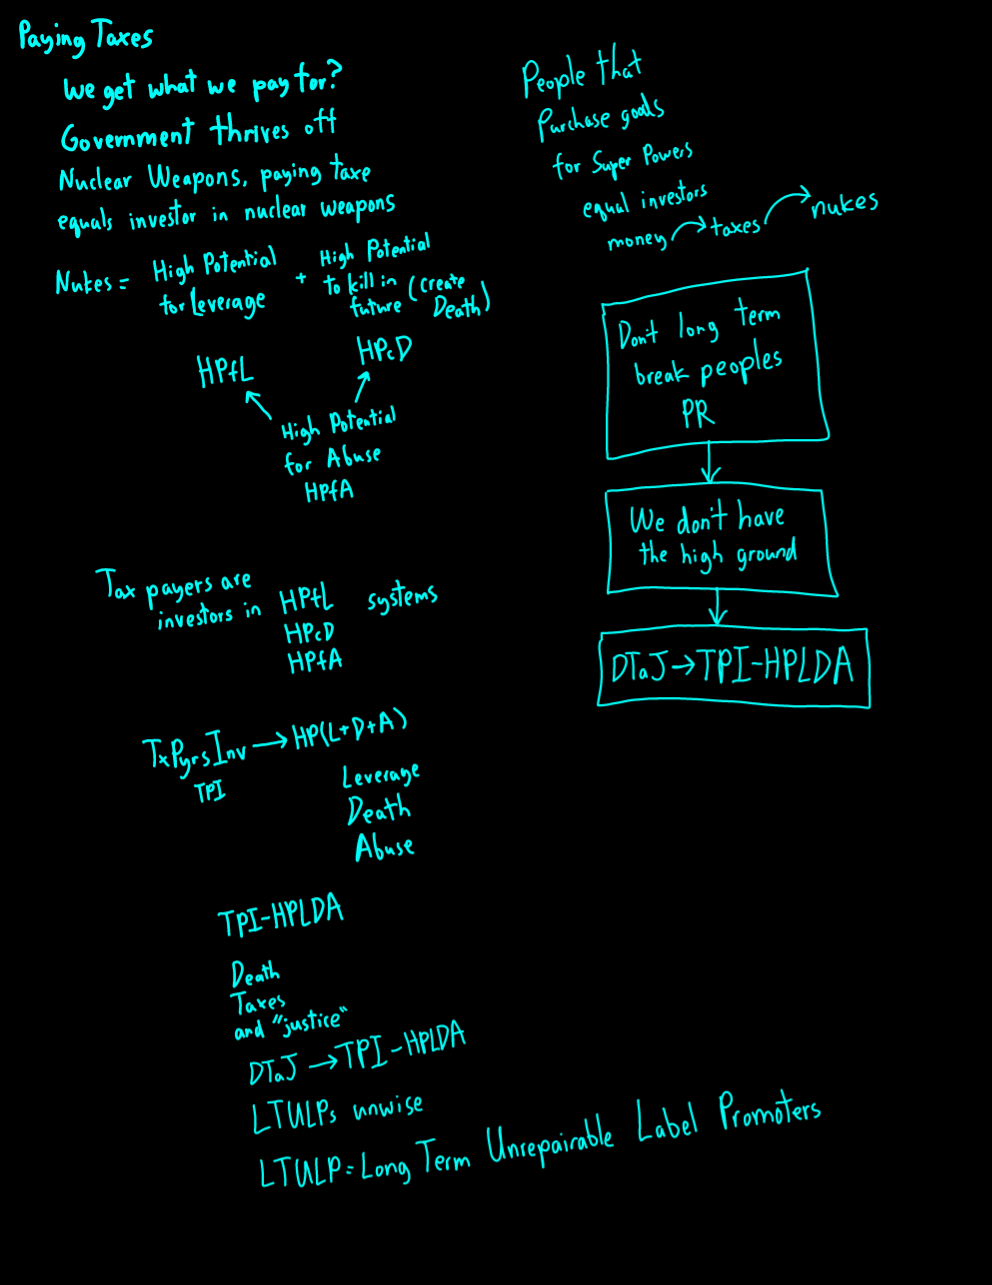 Paying Taxes
We get what we pay for?
Government thrives off
Nuclear Weapons, paying taxe
equals investor in nuclear weapons
Nukes = High Potential for Leverage + High Potential to kill in future (create Death)
HPfL
HPcD
High Potential
for Abuse
HPfA
Tax payers are
investors in HPfL systems
HPcD
HPfA
TxPyrsInv → HP(L+D+A)
TPI
Leverage
Death
Abuse
TPI-HPLDA
Death
Taxes
and "justice"
DTaJ → TPI-HPLDA
LTULPs unwise
LTULP = Long Term Unrepairable Label Promoters
People that
Purchase goals
for Super Powers
equal investors
money → taxes → nukes
Don't long term
break peoples
PR
We don't have
the high ground
DTaJ → TPI-HPLDA